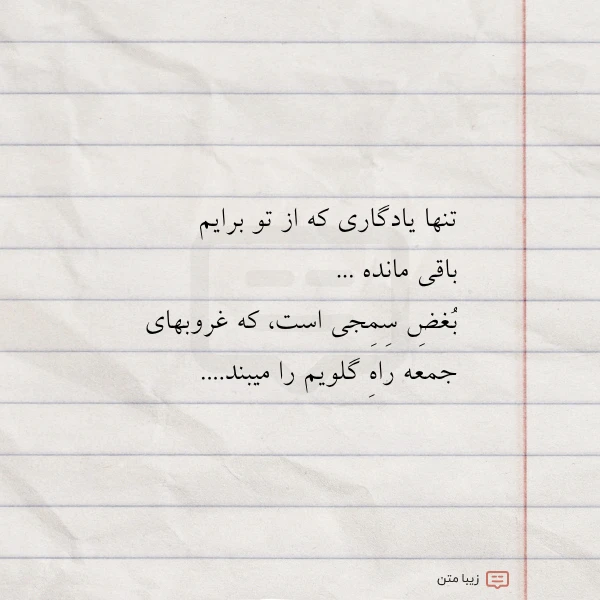 تنها یادگاری که از تو برایم
باقی مانده ...
بُغضِ سِمِجی است، که غروبهای
جمعه راهِ گلویم را میبند....
زیبا متن